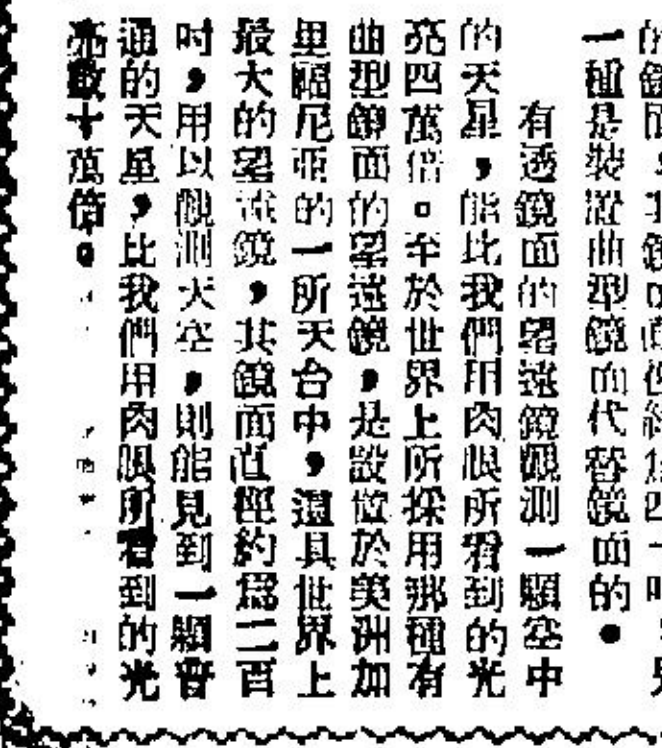 一種是裝置曲型鏡面代替鏡面的。
有透鏡面的望遠鏡觀測一顆空中
的天星，能比我們用肉眼所看到的光
亮四萬倍。至於世界上所採用那種有
曲型鏡面的望遠鏡，是設置於美洲加
里福尼亞的一所天台中，這具世界上
最大的望遠鏡，其鏡面直徑約爲二百
吋，用以觀測天空，則能見到一顆普
通的天星，比我們用肉眼所看到的光
亮數十萬倍。